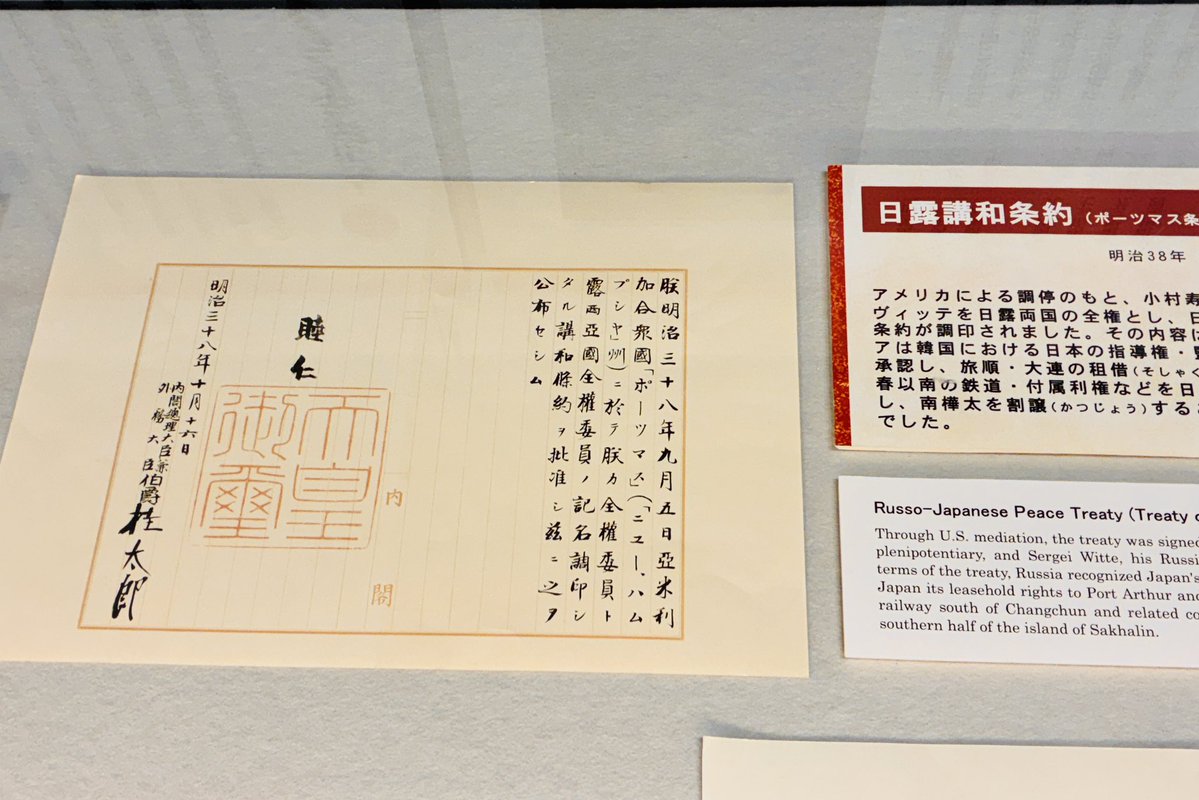 朕明治三十八年九月五日亞米利
加合衆國「ポーツマス」(「ニユー、ハム
プシヤ」州)ニ於テ朕カ全權委員ト
露西亞國全權委員ノ記名調印シ
タル講和條約ヲ批准シ茲ニ之ヲ
公布セシム
睦仁
天皇御璽
明治三十八年十月十六日
内閣總理大臣兼
外務大臣伯爵桂太郎
内閣
日露講和条約(ポーツマス条
明治38年
アメリカによる調停のもと、小村寿
ヴィッテを日露両国の全権とし、日
条約が調印されました。その内容は
アは韓国における日本の指導権・監
承認し、旅順・大連の租借(そしゃく
春以南の鉄道・付属利権などを日
し、南樺太を割譲(かつじょう)する
でした。
Russo-Japanese Peace Treaty (Treaty o
Through U.S. mediation, the treaty was signed
plenipotentiary, and Sergei Witte, his Russi
terms of the treaty, Russia recognized Japan's
Japan its leasehold rights to Port Arthur and
railway south of Changchun and related co
southern half of the island of Sakhalin.